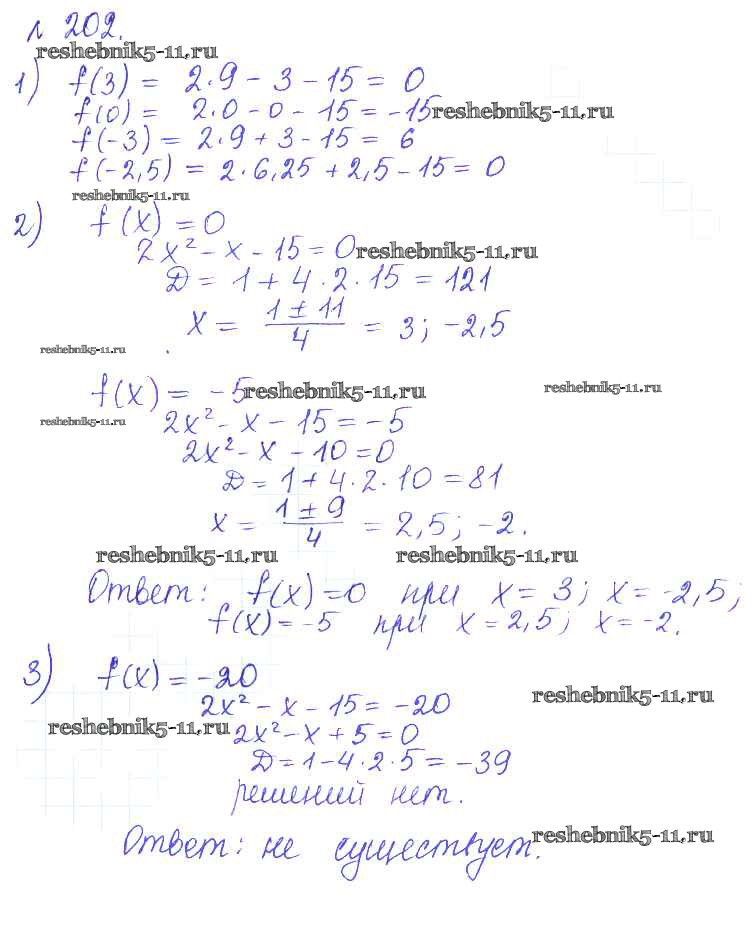 № 202.
reshebnik5-11.ru
1) f(3) = 2·9 - 3 - 15 = 0
f(0) = 2·0 - 0 - 15 = -15 reshebnik5-11.ru
f(-3) = 2·9 + 3 - 15 = 6
f(-2,5) = 2·6,25 + 2,5 - 15 = 0
reshebnik5-11.ru
2) f(x) = 0
2x² - x - 15 = 0 reshebnik5-11.ru
D = 1 + 4·2·15 = 121
x = (1 ± 11)/4 = 3; -2,5
reshebnik5-11.ru
f(x) = -5 reshebnik5-11.ru reshebnik5-11.ru
reshebnik5-11.ru 2x² - x - 15 = -5
2x² - x - 10 = 0
D = 1 + 4·2·10 = 81
x = (1 ± 9)/4 = 2,5; -2.
reshebnik5-11.ru reshebnik5-11.ru
Ответ: f(x) = 0 при x = 3; x = -2,5;
f(x) = -5 при x = 2,5; x = -2.
3) f(x) = -20
2x² - x - 15 = -20 reshebnik5-11.ru
reshebnik5-11.ru 2x² - x + 5 = 0
D = 1 - 4·2·5 = -39
решений нет.
Ответ: не существует. reshebnik5-11.ru